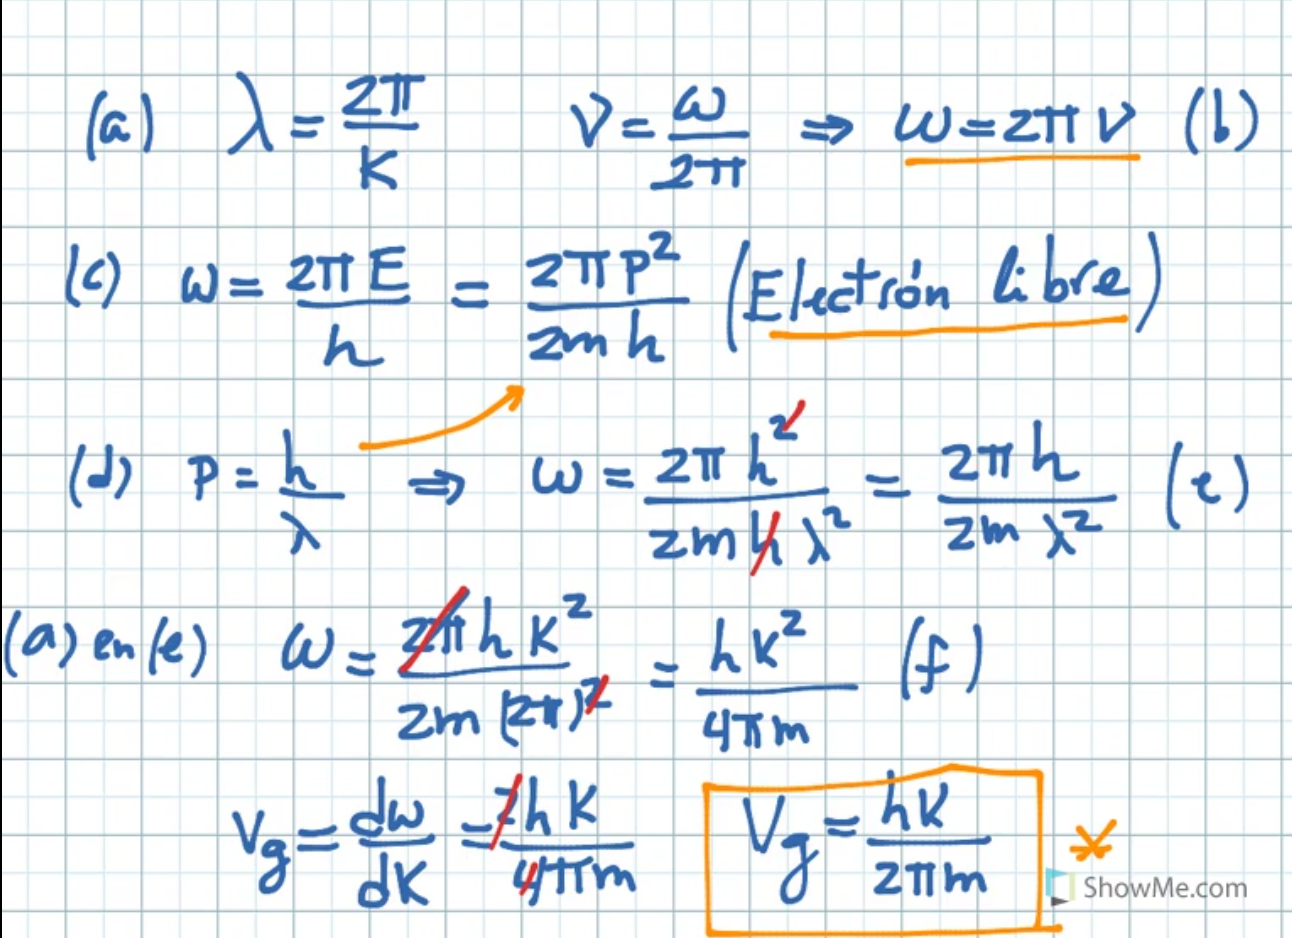 (a) λ = 2π/K ν = ω/2π ⇒ ω = 2π ν (b)
(c) ω = 2π E/h = 2π P²/2m h (Electrón libre)
(d) P = h/λ ⇒ ω = 2π h²/2m h λ² = 2π h/2m λ² (e)
(a) en (e) ω = 2π h K²/2m (2π)² = h K²/4π m (f)
Vg = dω/dK = 2 h K/4π m Vg = hK/2π m *
ShowMe.com